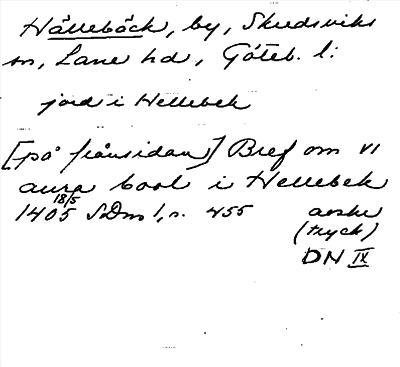 Hällebäck, by, Skredsviks
sn, Lane hd, Göteb. l:
jord i Hellebek
[på frånsidan] Bref om VI
aura bool i Hellebek
1405 18/5 SDns I, s. 455 avskr
(tryck)
DN IX